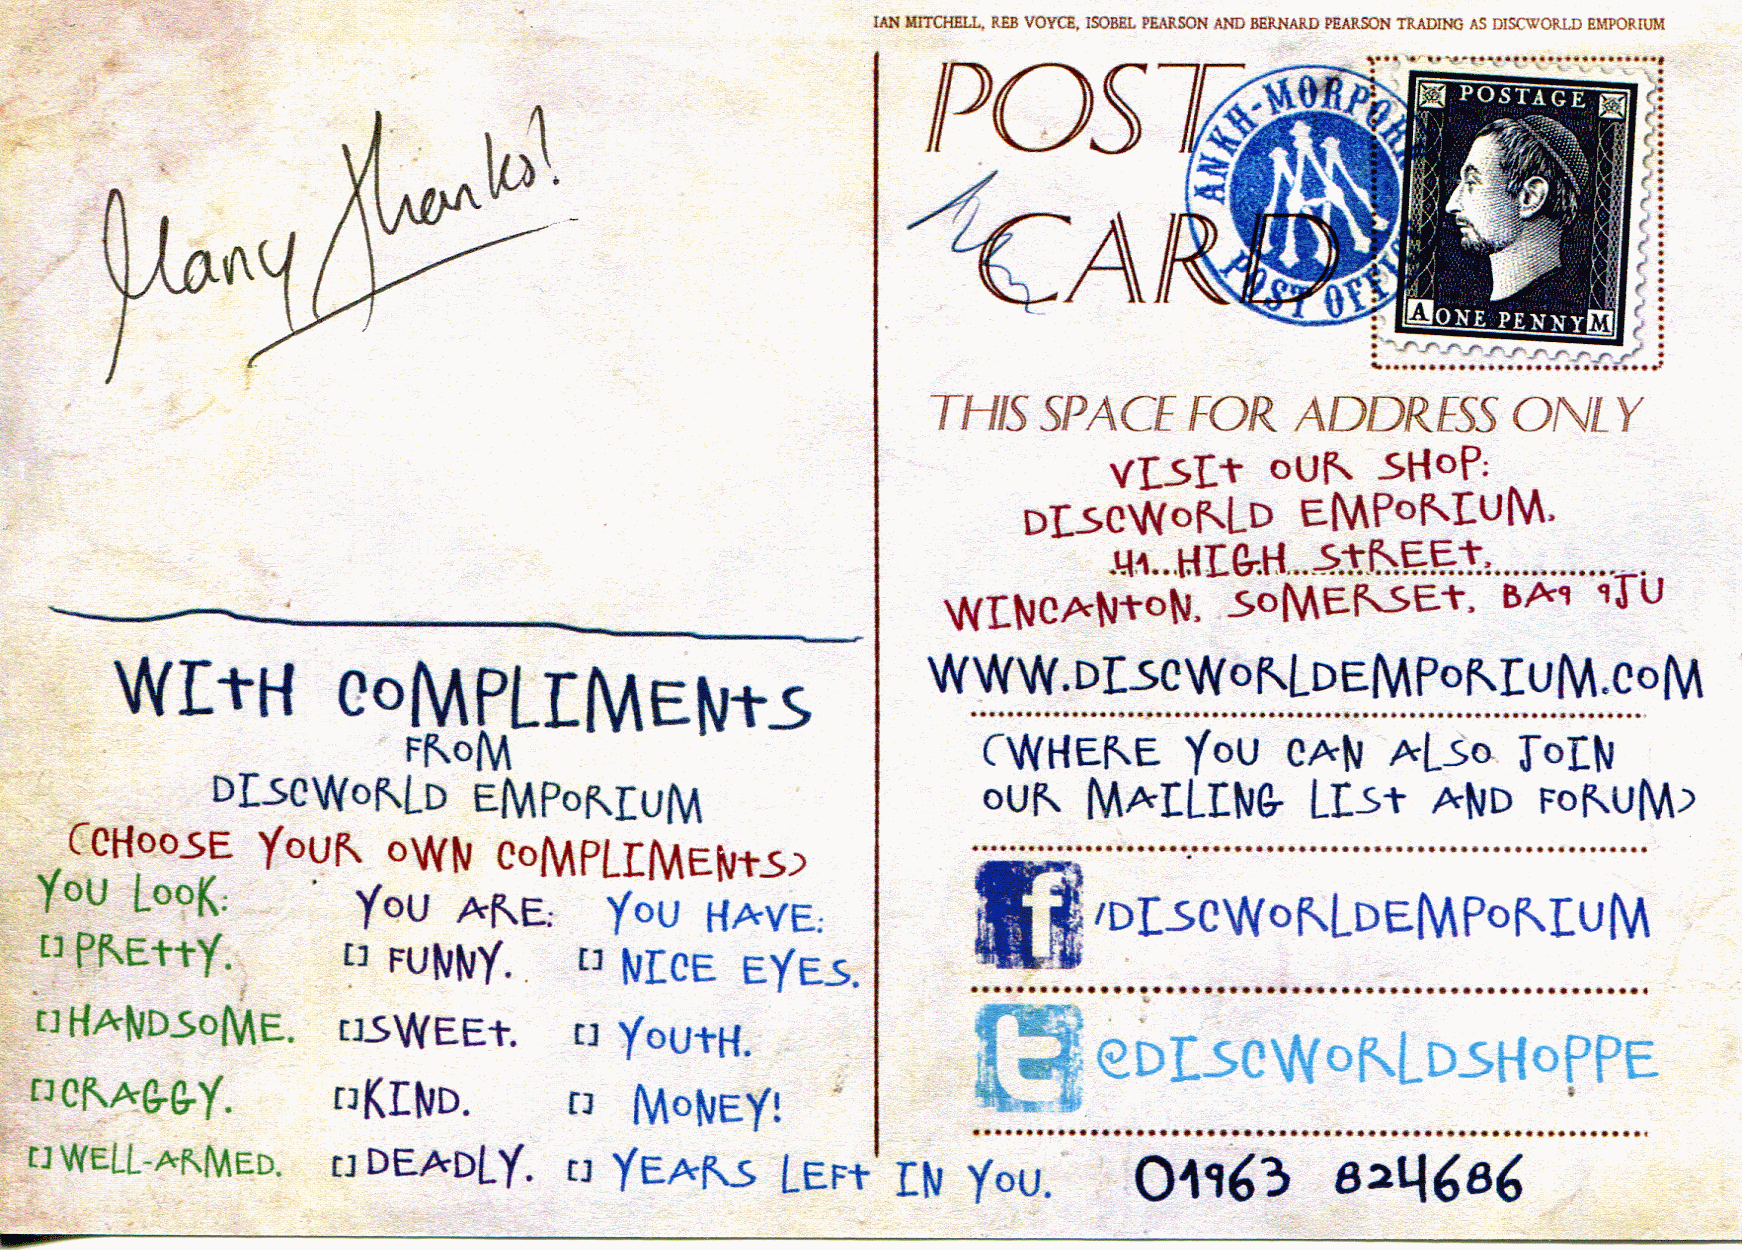 IAN MITCHELL, REB VOYCE, ISOBEL PEARSON AND BERNARD PEARSON TRADING AS DISCWORLD EMPORIUM
Many thanks!
POST
CARD
ANKH-MORPORK
POST OFFICE
POSTAGE
A ONE PENNY M
THIS SPACE FOR ADDRESS ONLY
VISIT OUR SHOP:
DISCWORLD EMPORIUM,
41 HIGH STREET,
WINCANTON, SOMERSET, BA9 9JU
WWW.DISCWORLDEMPORIUM.COM
(WHERE YOU CAN ALSO JOIN
OUR MAILING LIST AND FORUM)
f /DISCWORLDEMPORIUM
t @DISCWORLDSHOPPE
01963 824686
WITH COMPLIMENTS
FROM
DISCWORLD EMPORIUM
(CHOOSE YOUR OWN COMPLIMENTS)
YOU LOOK: YOU ARE: YOU HAVE:
[] PRETTY. [] FUNNY. [] NICE EYES.
[] HANDSOME. [] SWEET. [] YOUTH.
[] CRAGGY. [] KIND. [] MONEY!
[] WELL-ARMED. [] DEADLY. [] YEARS LEFT IN YOU.